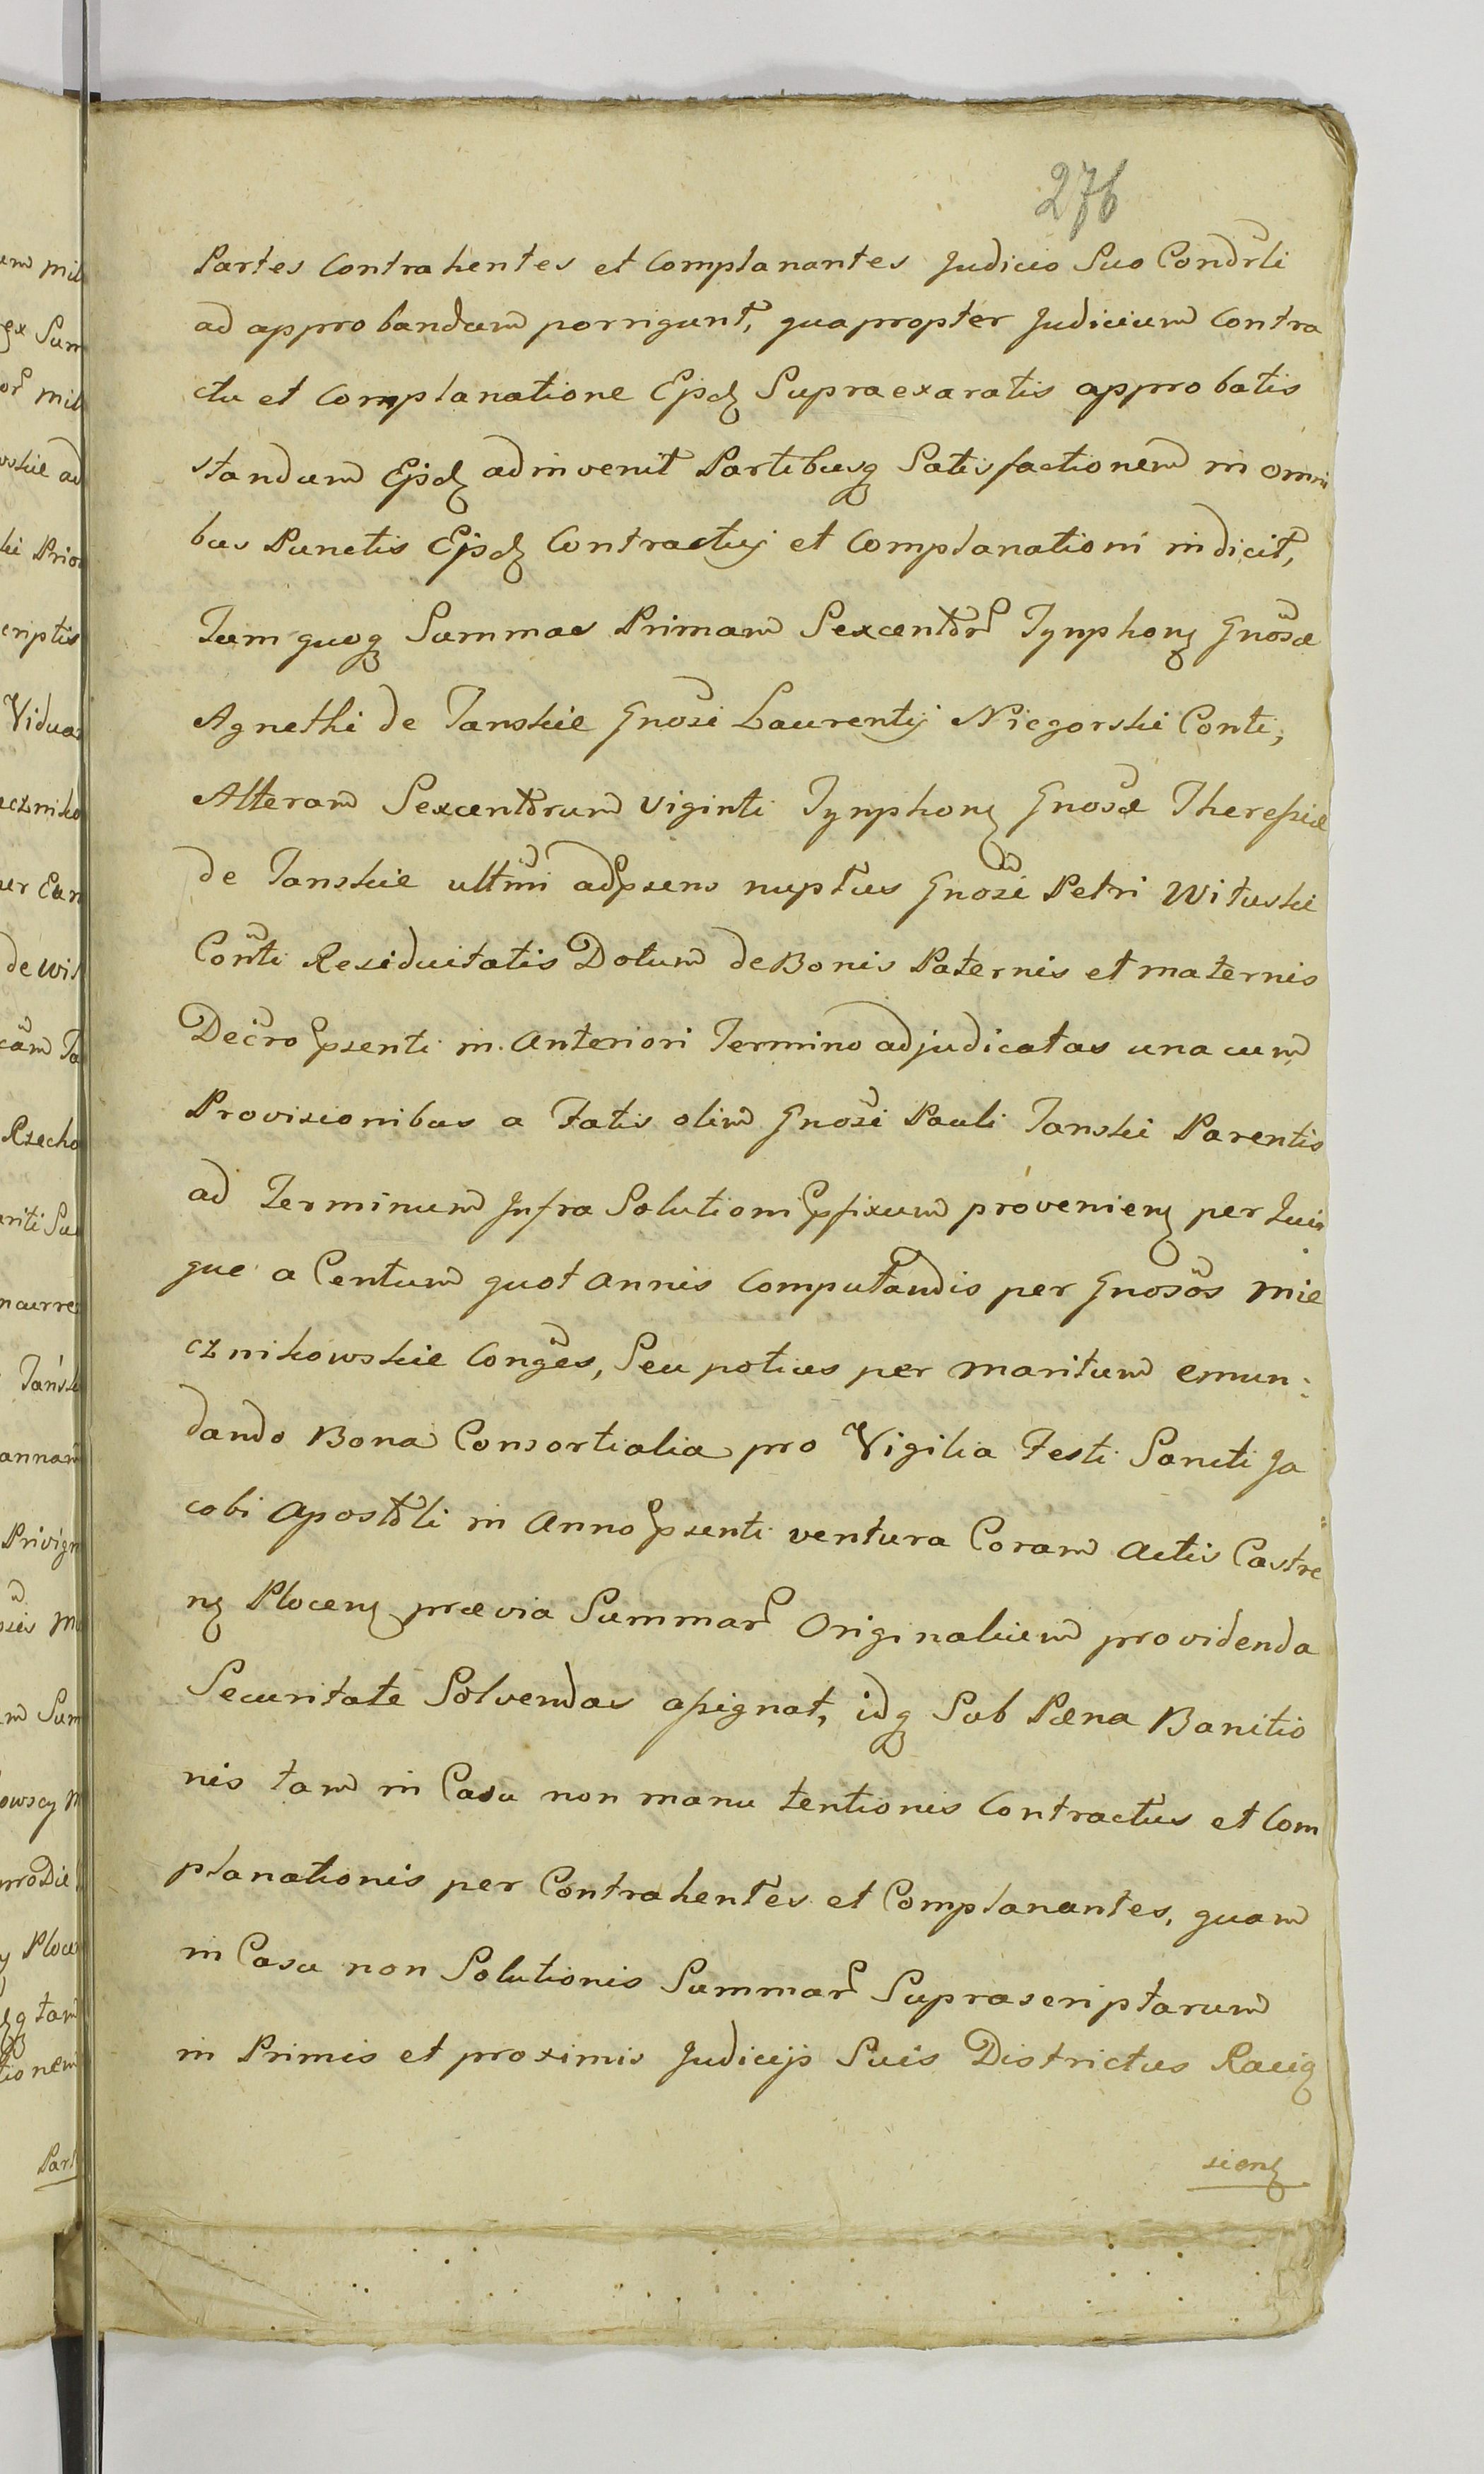 276
Partes Contrahentes et Complanantes Judicio Suo Condrli
ad approbandum porrigunt, quapropter Judicium Contra
ctu et Complanatione Ejsdq Supraexaratis approbatis
standum Ejsdq adinvenit Partibusq Satisfactionem in omni
bus Punctis Ejsdq Contractuj et Complanationi indicit,
Tum quoq Summas Primam Sexcentor Tynphonq Gnosæ
Agnethi de Tanskie Gnosi Laurentij Niegorski Conti,
Alteram Sexcentorum viginti Tynphonq Gnosæ Theresiæ
de Tanskie ultmi adpsens nuptus Gnosi Petri Wituski
Conti Residuitatis Dotum de Bonis Paternis et maternis
Decro psenti in Anteriori Termino adjudicatas una cum
Provisionibus a Fatis olim Gnosi Pauli Tanski Parentis
ad Terminum Infra Solutioni pfixum provenienq per Quin
que a Centum quot annis Computandis per Gnosos Mie
cznikowskie Conges, Seu potius per maritum emun:
dando Bona Consortialia pro Vigilia Festi Sancti Ja
cobi Apostoli in Anno psenti ventura Coram Actis Castre
nq Plocenq prævia Summar Originalium providenda
Securitate Solvendas assignat, idq Sub Pæna Banitio
nis tam in Casu non manu tentionis Contractus et Com
planationis per Contrahentes et Complanantes, quam
in Casu non Solutionis Summar Suprascriptarum
in Primis et proximis Judicijs Suis Districtus Raciq
sienq